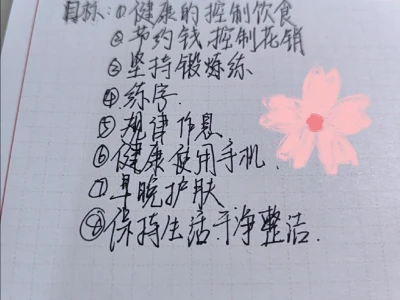 目标:①健康的控制饮食
②节约钱控制花销
③坚持锻炼练
④练字.
⑤规律作息
⑥健康使用手机.
⑦早晚护肤
⑧保持生活干净整洁.